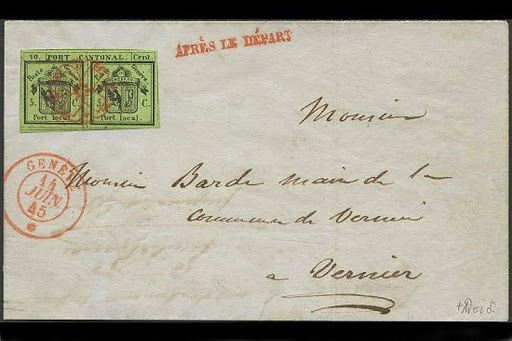 10. PORT CANTONAL. Cent
Poste Genève Poste Genève
5. C. 5. C.
Port local. Port local.
APRÈS LE DÉPART
Monsieur
GENÈVE
14
JUIN
45
Monsieur Barde maire de la
commune de Vernier
a Vernier